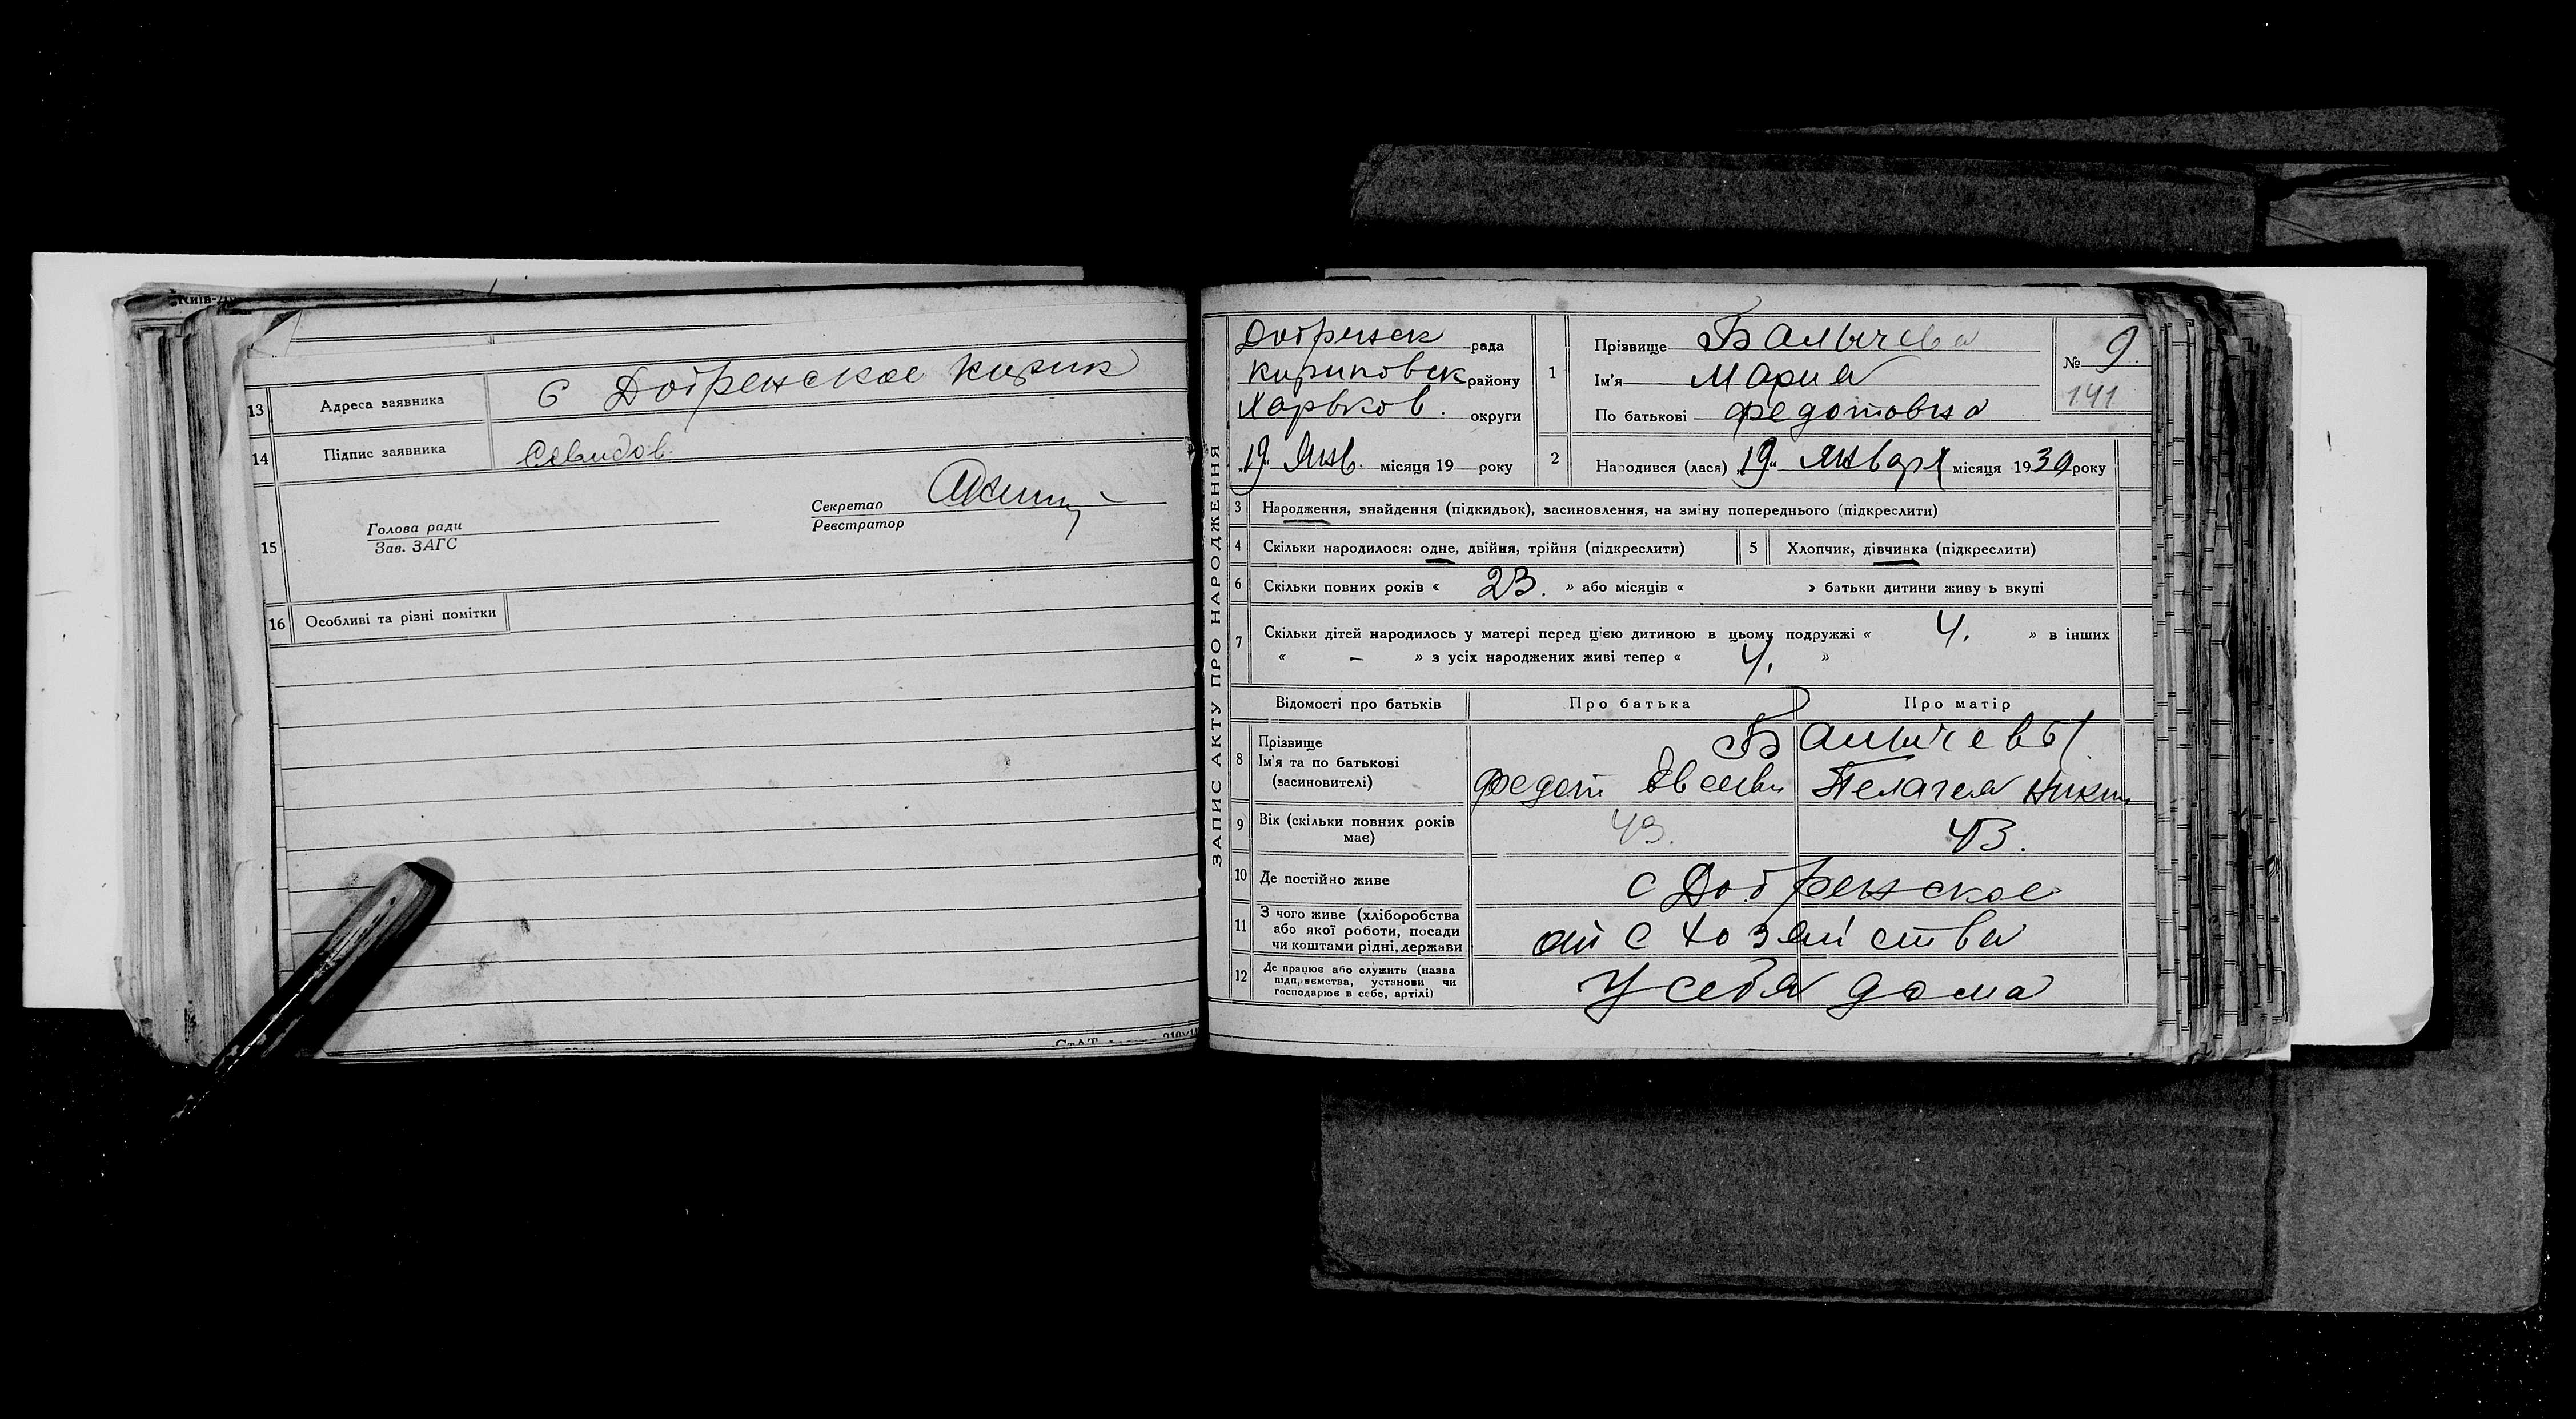 Київ-Др
13 Адреса заявника с Добренское Кирик
14 Підпис заявника
15 Голова ради
Зав. ЗАГС
Секретар
Реєстратор
16 Особливі та різні помітки
ЗАПИС АКТУ ПРО НАРОДЖЕННЯ
Добренск рада
района району
Харьков. округи
„19“ Янв. місяця 19 року
1 Прізвище Балычева
Ім'я Мария
По батькові Федотовна
№ 9.
141
2 Народився (лася) „19“ Января місяця 1930 року
3 Народження, знайдення (підкидьок), засиновлення, на зміну попереднього (підкреслити)
4 Скільки народилося: одне, двійня, трійня (підкреслити) 5 Хлопчик, дівчинка (підкреслити)
6 Скільки повних років « 23. » або місяців « » батьки дитини живуть вкупі
7 Скільки дітей народилось у матері перед цією дитиною в цьому подружжі « 4. » в інших
« – » з усіх народжених живі тепер « 4. »
Відомості про батьків Про батька Про матір
8 Прізвище Балычевы
Ім'я та по батькові
(засиновителі) Федот Евсеев Пелагея Никит
9 Вік (скільки повних років має) 43. 43.
10 Де постійно живе с Добренское
11 З чого живе (хліборобства
або якої роботи, посади
чи коштами рідні, держави от с хозяйства
12 Де працює або служить (назва
підприємства, установи чи
господарює в себе, артілі) у себя дома